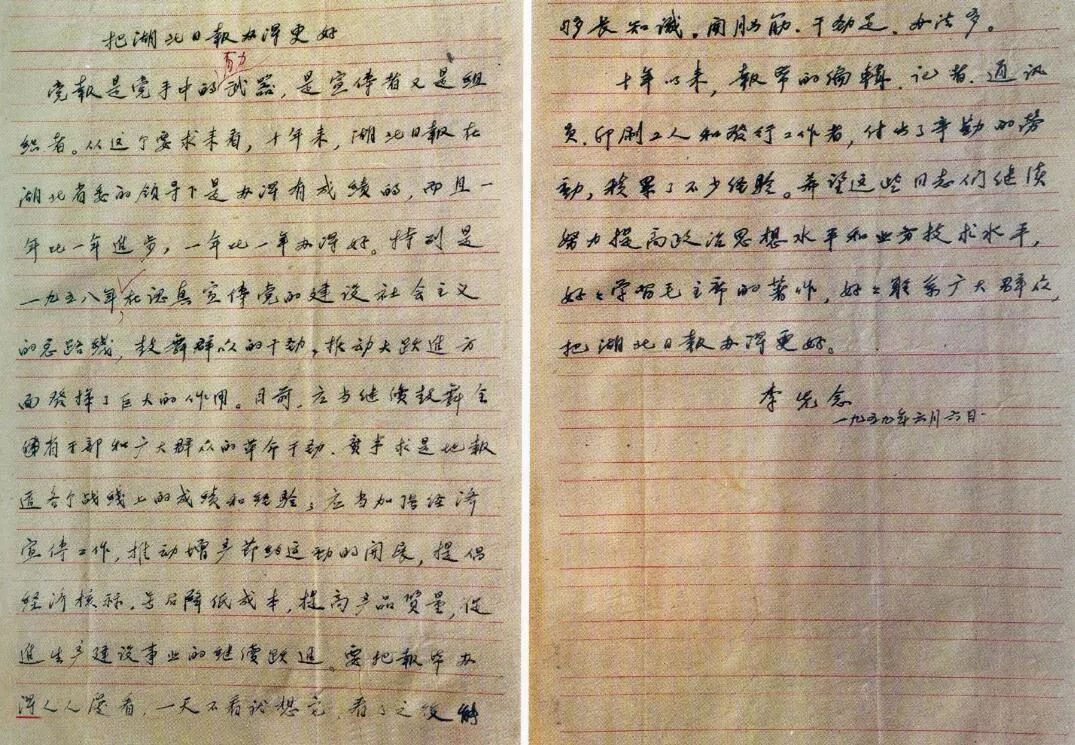 把湖北日报办得更好
有力
党報是党手中的武器，是宣传者又是組
织者。从这个要求来看，十年来，湖北日報在
湖北省委的领导下是办得有成績的，而且一
年比一年進步，一年比一年办得好。特别是
一九五八年，在認真宣传党的建设社会主义
的总路线，鼓舞群众的干劲，推动大跃進方
面發揮了巨大的作用。目前，应当继续鼓舞全
省干部和广大群众的革命干劲，实事求是地報
道各个战线上的成績和经验；应当加强经济
宣传工作，推动增产节约运动的开展，提倡
经济核称，号召降低成本，提高产品質量，促
進生产建设事业的继續跃進。要把報纸办
得人人爱看，一天不看就想它，看了之後能
够长知识，開脑筋，干劲足，办法多。
十年以来，報纸的编輯、记者、通讯
员、印刷工人和發行工作者，付出了辛勤的劳
动，積累了不少经验。希望这些同志们继续
努力提高政治思想水平和业务技术水平，
好好学習毛主席的著作，好好联系广大群众，
把湖北日報办得更好。
李先念
一九五九年六月六日